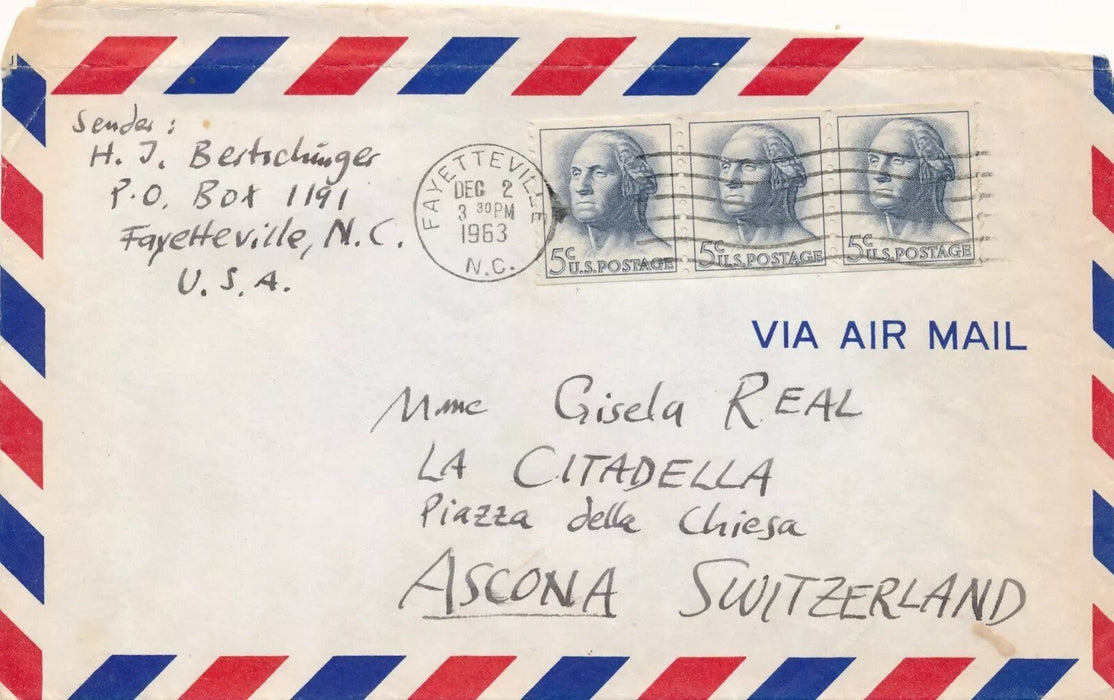 Sender:
H. J. Bertschinger
P.O. Box 1191
Fayetteville, N.C.
U.S.A.
FAYETTEVILLE
DEC 2
3 30 PM
1963
N.C.
5c U.S. POSTAGE
5c U.S. POSTAGE
5c U.S. POSTAGE
VIA AIR MAIL
Mme Gisela REAL
LA CITADELLA
Piazza della Chiesa
ASCONA SWITZERLAND